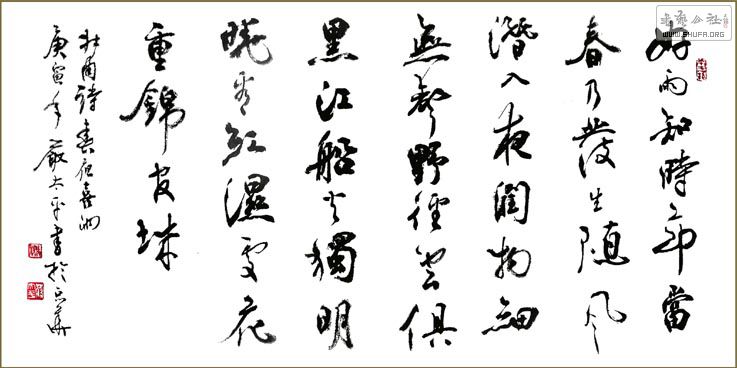 好雨知時節當
春乃發生隨風
潛入夜潤物細
無聲野徑雲俱
黑江船火獨明
曉看紅濕處花
重錦官城
杜甫詩春夜喜雨
庚寅年嚴太平書於京華
书艺公社
WWW.SHUFA.ORG